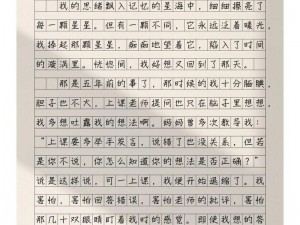 我的思绪飘入记忆的星海中，细细擦亮了
每一颗星星。但有一颗不同，它永远泛着暖光。
我捧起那星星，痴痴地望着它，陷入了时间
的漩涡里。恍惚间，我好想又回到了那天。
那是五年前的事了，那时候的我十分腼腆，
胆子也不大，上课老师提问也只在脑子里想想。
我多想吐露我的想法啊。妈妈曾多次教导我：
“上课要多举手发言，说错了也没关系，但若
是你不说，你怎么知道你的想法是否正确？”
说是这样说，可一上课，我便开始退缩了。我
害怕，害怕回答错误，害怕老师的批评，害怕
那几十双眼睛盯着我时的感觉。即使我想的答